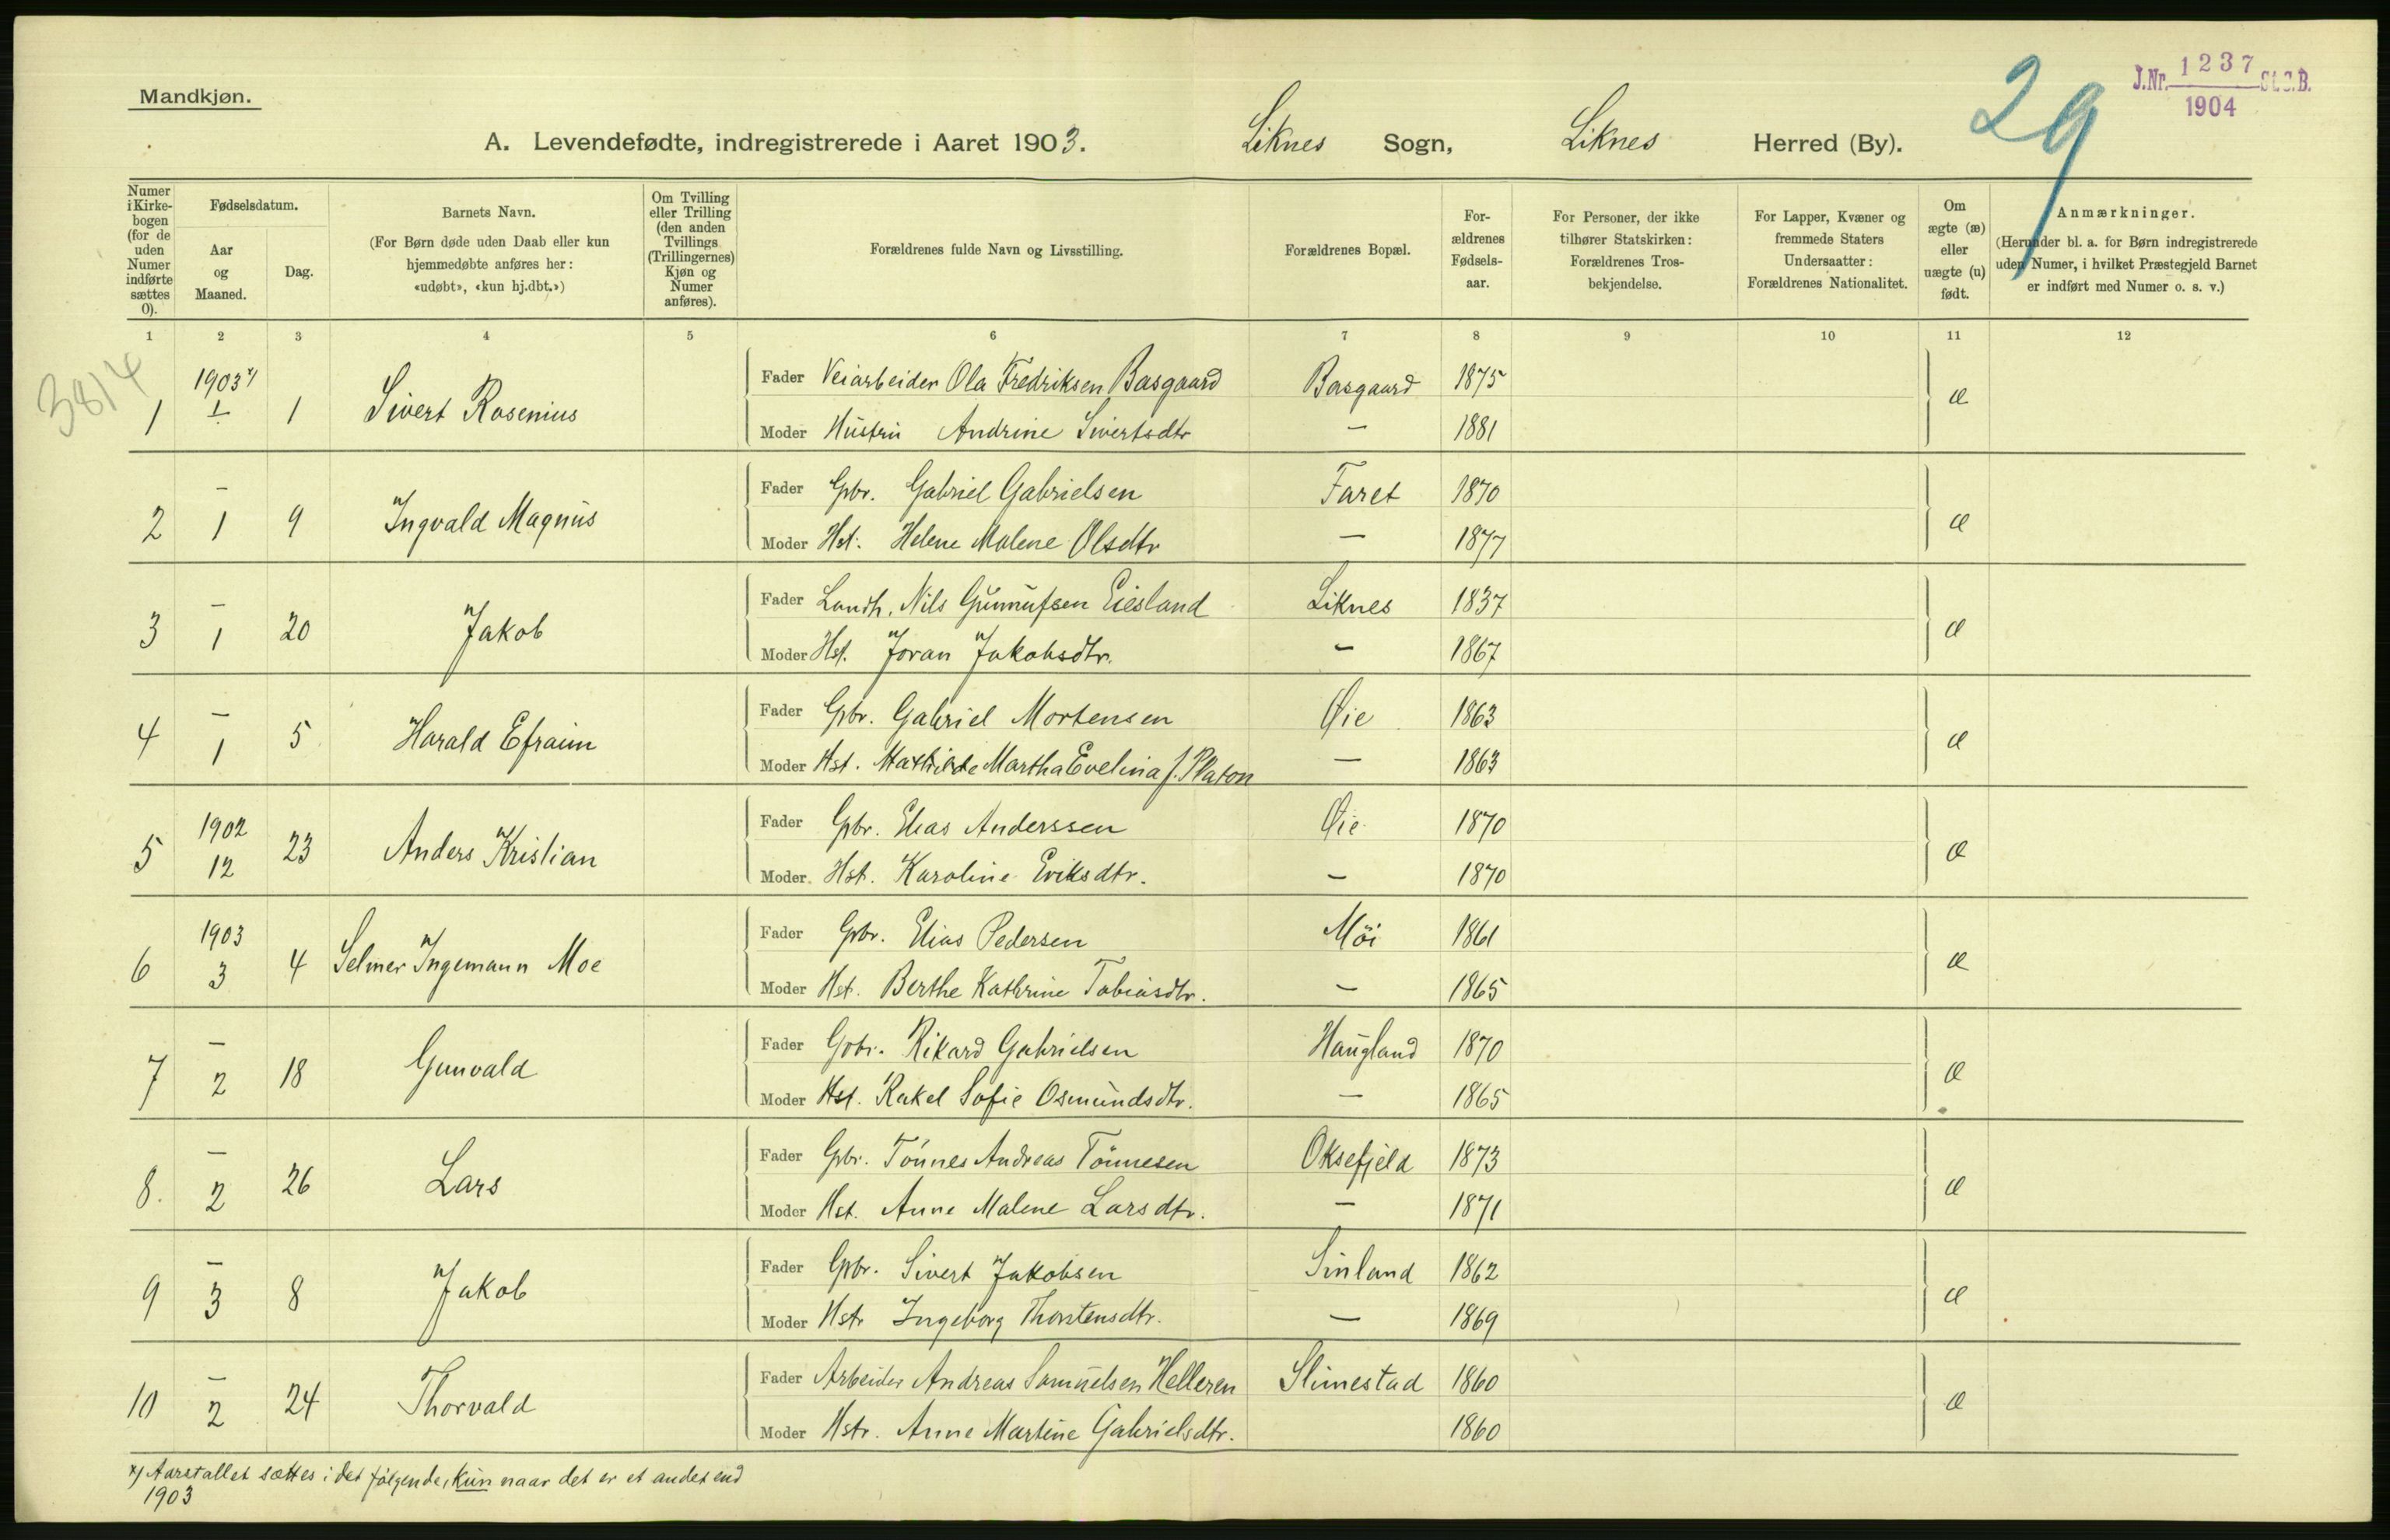 Mandkjøn.
J.Nr. 1237 St.C.B.
1904
29
A. Levendefødte, indregistrerede i Aaret 1903. Liknes Sogn, Liknes Herred (By).
Numer i Kirke-bogen (for de uden Numer indførte sættes 0).
Fødselsdatum.
Aar og Maaned.
Dag.
Barnets Navn.
(For Børn døde uden Daab eller kun hjemmedøbte anføres her: «udøbt», «kun hj.dbt.»)
Om Tvilling eller Trilling (den anden Tvillings (Trillingernes) Kjøn og Numer anføres).
Forældrenes fulde Navn og Livsstilling.
Forældrenes Bopæl.
For-ældrenes Fødsels-aar.
For Personer, der ikke tilhører Statskirken: Forældrenes Tros-bekjendelse.
For Lapper, Kvæner og fremmede Staters Undersaatter: Forældrenes Nationalitet.
Om ægte (æ) eller uægte (u) født.
Anmærkninger.
(Herunder bl. a. for Børn indregistrerede uden Numer, i hvilket Præstegjeld Barnet er indført med Numer o. s. v.)
1 2 3 4 5 6 7 8 9 10 11 12
3814
1 1903 x) 1 1 Sivert Rosenius Fader Veiarbeider Ola Fredriksen Basgaard Basgaard 1875 æ
Moder Hustru Andrine Sivertsdtr — 1881
2 — 1 9 Ingvald Magnus Fader Gbr. Gabriel Gabrielsen Faret 1870 æ
Moder Hst. Helene Malene Olsdtr — 1877
3 — 1 20 Jakob Fader Landh. Nils Gunnufsen Eiesland Liknes 1837 æ
Moder Hst. Joran Jakobsdtr. — 1867
4 — 1 5 Harald Efraim Fader Gbr. Gabriel Mortensen Øie 1863 æ
Moder Hst. Mathilde Martha Evelina f. Platon — 1863
5 1902 12 23 Anders Kristian Fader Gbr. Elias Anderssen Øie 1870 æ
Moder Hst. Karoline Eriksdtr. — 1870
6 1903 3 4 Selmer Ingemann Moe Fader Gbr. Elias Pedersen Möi 1861 æ
Moder Hst. Berthe Kathrine Tobiasdtr. — 1865
7 — 2 18 Gunvald Fader Gbr. Rikard Gabrielsen Haugland 1870 æ
Moder Hst. Rakel Sofie Osmundsdtr. — 1865
8. — 2 26 Lars Fader Gbr. Tönnes Andreas Tönnesen Oksefjeld 1873 æ
Moder Hst. Anne Malene Larsdtr. — 1871
9 — 3 8 Jakob Fader Gbr. Sivert Jakobsen Sinland 1862 æ
Moder Hstr Ingeborg Thorstensdtr. — 1869
10 — 2 24 Thorvald Fader Arbeider Andreas Samuelsen Helleren Slimestad 1860 æ
Moder Hstr. Anne Martine Gabrielsdtr. 1860
x) Aarstallet sættes i det følgende, kun naar det er et andet end
1903